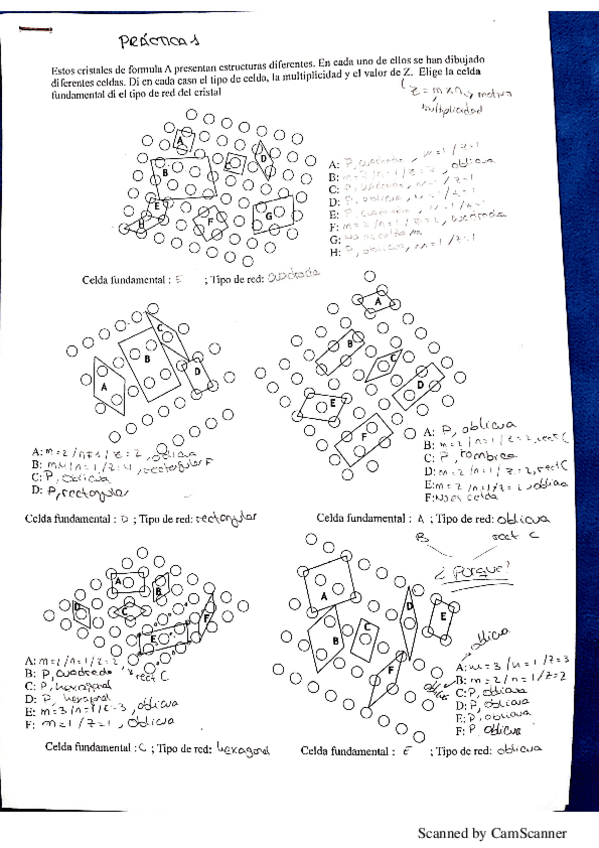 PRÁCTICA 1
Estos cristales de formula A presentan estructuras diferentes. En cada uno de ellos se han dibujado
diferentes celdas. Di en cada caso el tipo de celda, la multiplicidad y el valor de Z. Elige la celda
fundamental di el tipo de red del cristal
Z = m x n, motivo
multiplicidad
A
B
C
D
E
F
G
H
A: P, cuadrada, m=1/Z=1
B: oblicua
C: P, cuadrada, m=1/Z=1
D: P, oblicua, m=1/Z=1
E: P, cuadrada, m=1/Z=1
F: m=2/n=1/Z=2, cuadrada
G: No es celda
H: P, oblicua, m=1/Z=1
Celda fundamental : E ; Tipo de red: cuadrada
A
B
C
D
A: m=2/n=1/Z=2, oblicua
B: m=4/n=1/Z=4, rectangular F
C: P, oblicua
D: P, rectangular
Celda fundamental : D ; Tipo de red: rectangular
A
B
C
D
E
F
A: P, oblicua
B: m=2/n=1/Z=2, rect C
C: P, rombica
D: m=2/n=1/Z=2, rect C
E: m=2/n=1/Z=2, oblicua
F: No es celda
Celda fundamental : A ; Tipo de red: oblicua
B rect C
¿Porque?
A
B
C
D
E
F
A: m=2/n=1/Z=2, rect C
B: P, cuadrada
C: P, hexagonal
D: P, hexagonal
E: m=3/n=1/Z=3, oblicua
F: m=1/Z=1, oblicua
Celda fundamental : C ; Tipo de red: hexagonal
A
B
C
D
E
F
oblicua
A: m=3/n=1/Z=3
oblicua B: m=2/n=1/Z=2
C: P, oblicua
D: P, oblicua
E: P, oblicua
F: P, oblicua
Celda fundamental : E ; Tipo de red: oblicua
Scanned by CamScanner